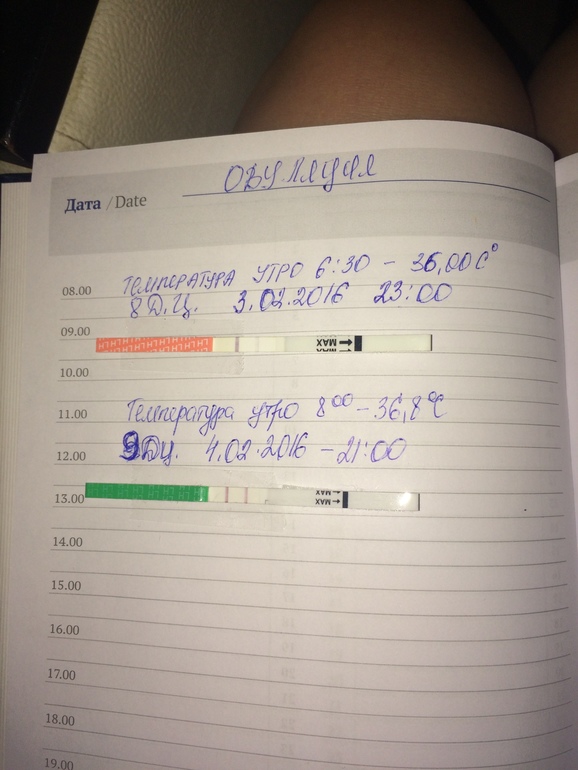 ОВУЛЯЦИЯ
Дата / Date
ТЕМПЕРАТУРА УТРО 6:30 - 36,00 С°
08.00
8 Д.Ц. 3.02.2016 23:00
09.00
LH LH LH LH LH LH MAX
10.00
Температура утро 8 00 - 36,8 °С
11.00
9 Дц. 4.02.2016 - 21:00
12.00
MAX
13.00
14.00
15.00
16.00
17.00
18.00
19.00